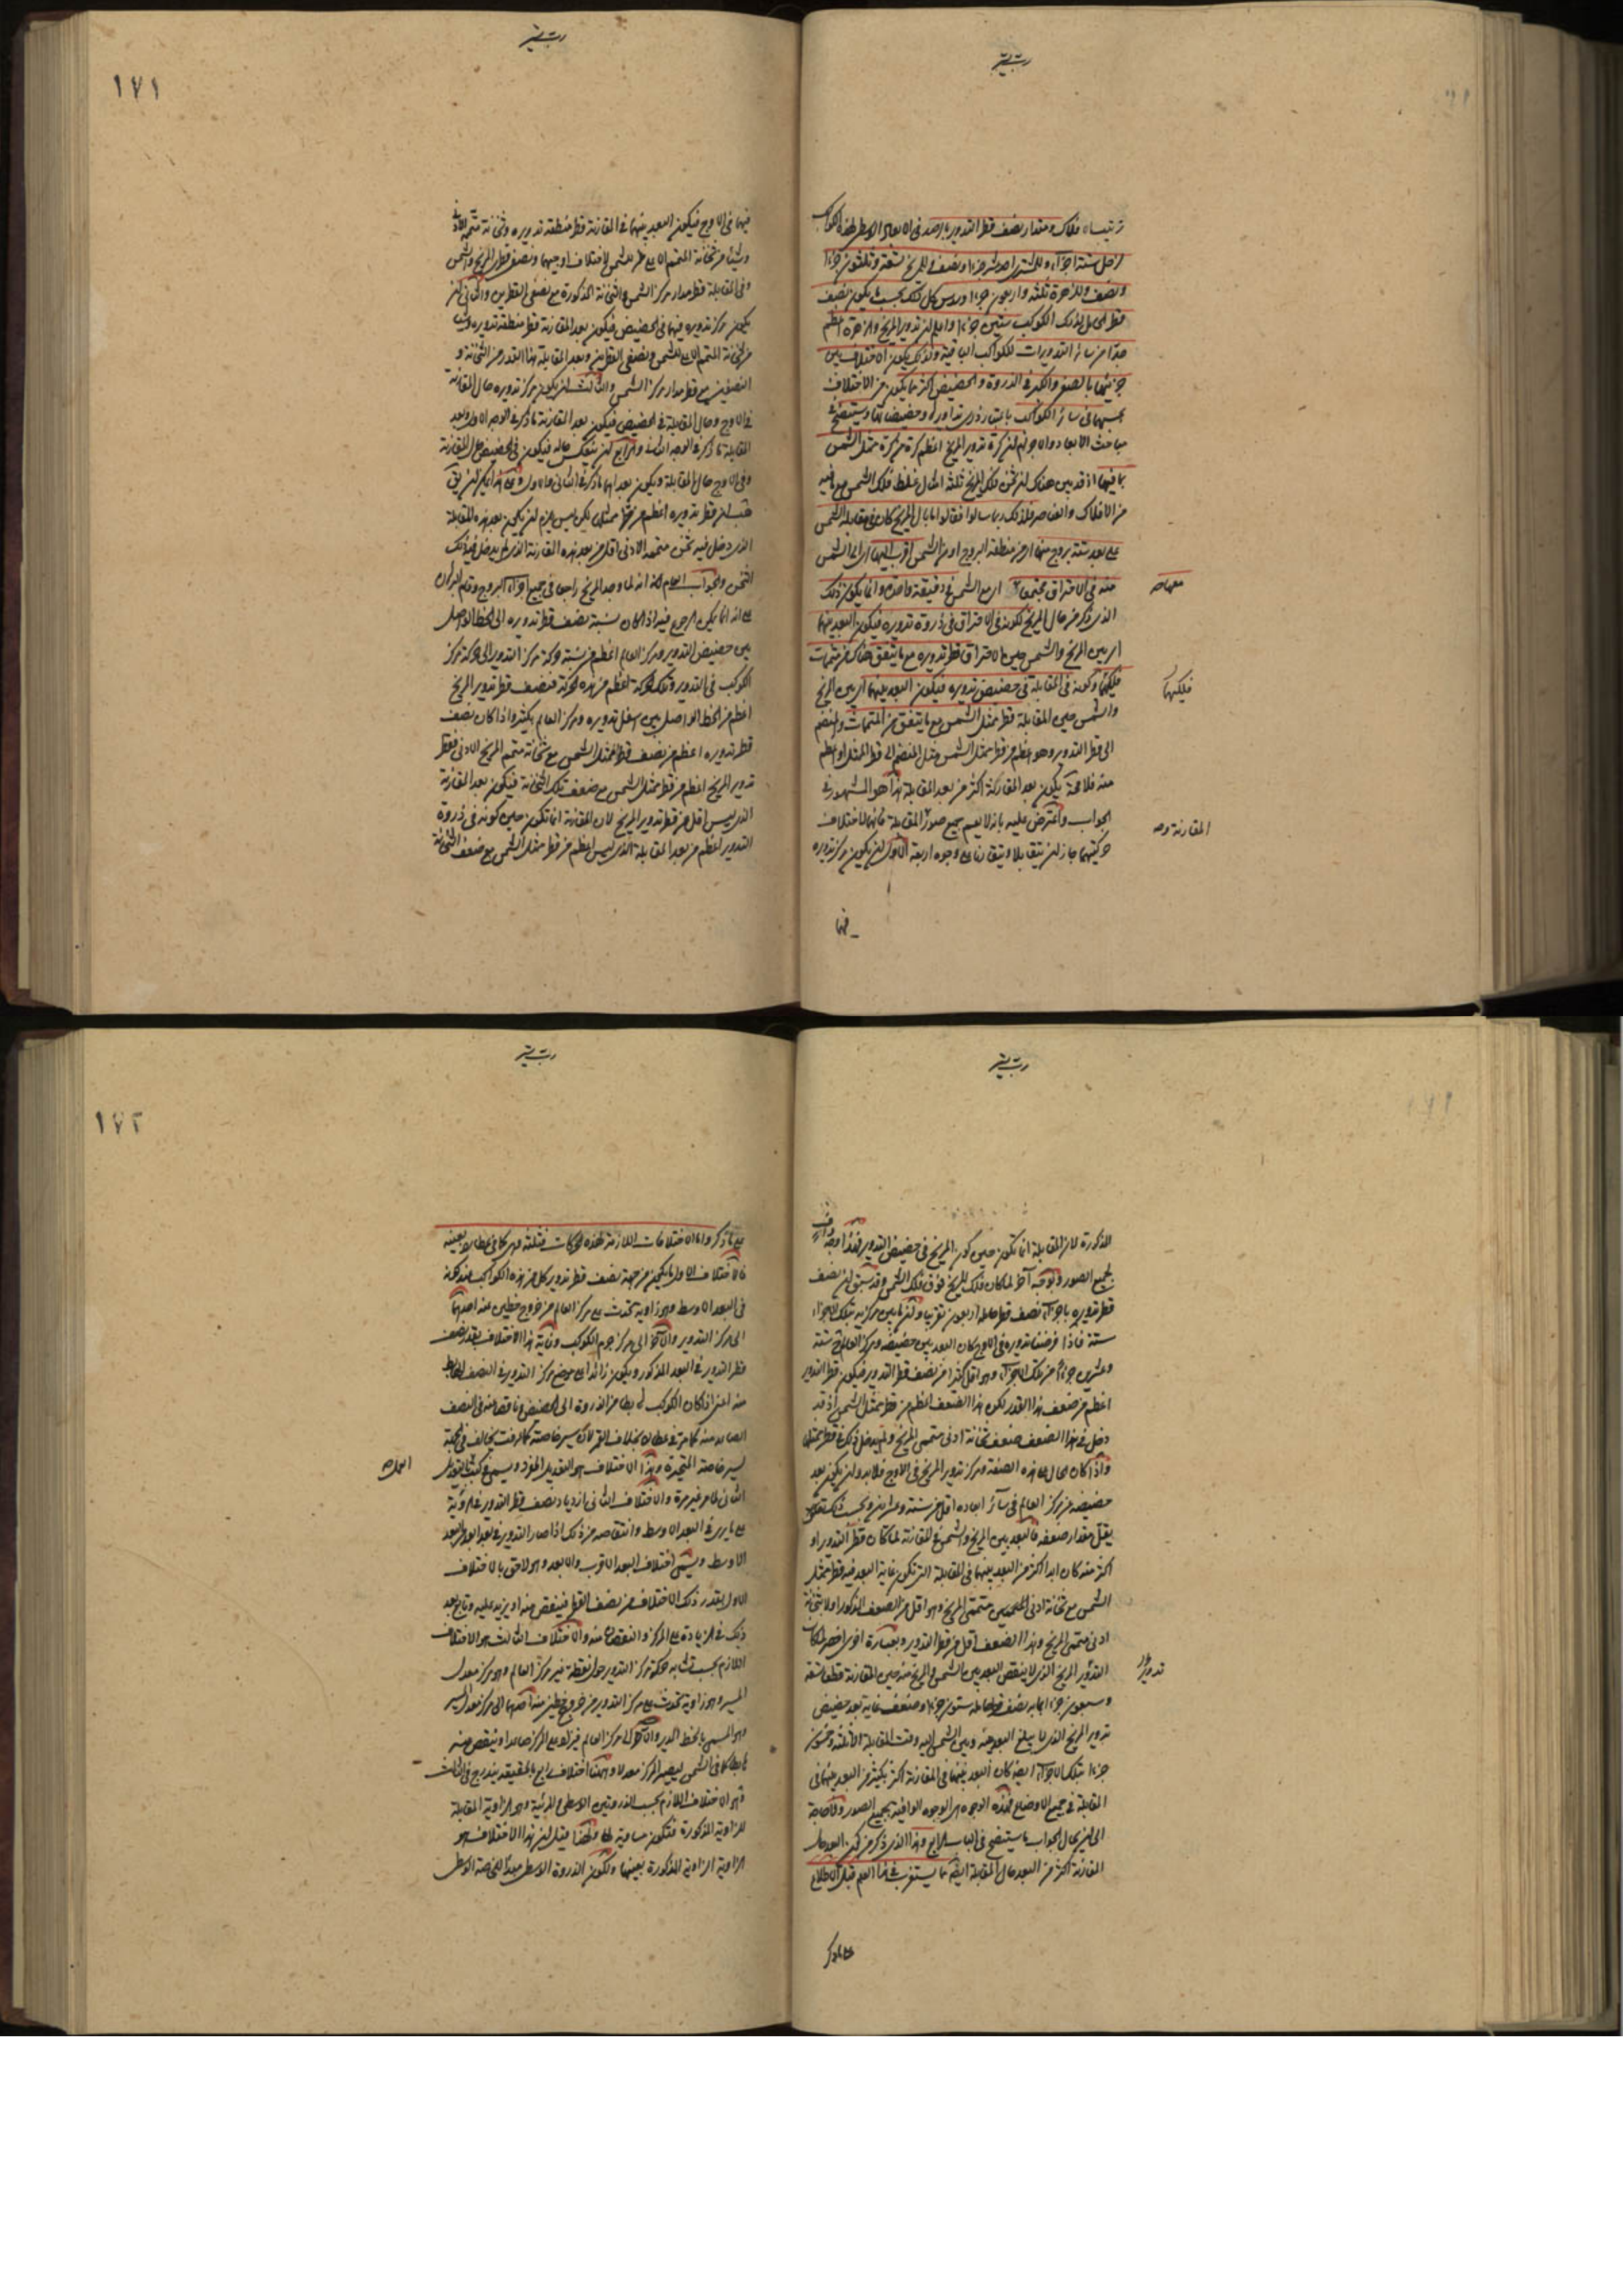 ترتيب الافلاك ومقدار نصف قطر التدوير بالرصد فى الابعاد الاوسط لهذه الكواكب
لزحل ستة اجزاء وللمشترى احد عشر جزءا ونصف وللمريخ تسعة وثلثون جزءا
ونصف وللزهرة ثلثة واربعون جزءا وسدس كل ذلك بحسب ما يكون نصف
قطر الحامل لذلك الكوكب ستين جزءا واعلم ان تدوير المريخ والزهرة اعظم
جدا من سائر التدويرات للكواكب الباقية ولذلك يكون الاختلاف بين
جرميهما بالصغر والكبر فى الذروة والحضيض اكثر مما يكون من الاختلاف
بحسبهما فى سائر الكواكب باعتبار ذرى تداويرها وحضيضاتها وسيتضح فى
مباحث الابعاد والاجرام ان كرة تدوير المريخ اعظم كرة من كرة ممثل الشمس
بما فيها اذ قد بين هناك ان ثخن فلك المريخ ثلثة امثال غلظ فلك الشمس مع ما فيه
من الافلاك والعناصر فلذلك ربما سالوا فقالوا ما بال المريخ كان فى مقابلة الشمس
على بعد ستة بروج منها من منطقة البروج او من الشمس اقرب اليها اى الى الشمس
منه فى الاحتراق مجتمعا اى مع الشمس فى دقيقة واحدة وانما يكون ذلك
معها صح
الذى ذكر من حال المريخ لكونه فى الاحتراق فى ذروة تدويره فيكون البعد بينهما
اى بين المريخ والشمس حين الاحتراق قطر تدويره مع ما يتفق هناك من متممات
فلكيهما وكونه فى المقابلة فى حضيض تدويره فيكون البعد بينهما اى بين المريخ
فلكيهما
والشمس حين المقابلة قطر ممثل الشمس مع ما يتفق من المتممات والمنضم
الى قطر التدوير وهو اعظم من قطر ممثل الشمس مثل المنضم الى قطر الممثل او اعظم
منه فلا محة يكون بعد المقارنة اكثر من بعد المقابلة هذا هو المشهور فى
الجواب واعترض عليه بانه لا يعم جميع صور المقابلة فانهما لاختلاف
المقارنة و صح
حركتيهما جاز ان يتقابلا ويتقارنا على وجوه اربعة الاول ان يكون مركز تدويره
فيها
١٧١
فيهما فى الاوج فيكون البعد بينهما فى المقارنة قطر منطقة تدويره وثخانة متممه الادنى
وشيئا من ثخانة المتمم الاعلى للشمس لاختلاف اوجيهما ونصف قطرى المريخ والشمس
وفى المقابلة قطر مدار مركز الشمس والثخانة المذكورة مع نصفى القطرين والثانى ان
يكون مركز تدويره فيهما فى الحضيض فيكون بعد المقارنة قطر منطقة تدويره وشيئا
من ثخانة المتمم الاعلى للشمس ونصفى القطرين وبعد المقابلة هذا القدر من الثخانة و
النصفين مع قطر مدار مركز الشمس والثالث ان يكون مركز تدويره حال المقارنة
فى الاوج وحال المقابلة فى الحضيض فيكون بعد المقارنة ما ذكر فى الوجه الاول وبعد
المقابلة ما ذكر فى الوجه الثانى والرابع ان ينعكس حاله فيكون فى الحضيض حال المقارنة
وفى الاوج حال المقابلة ويكون بعداهما ما ذكر فى الثانى والاول
هب ان قطر تدويره اعظم من قطر ممثلها لكن ليس يلزم ان يكون بعد هذه المقابلة
الذى دخل فيه ثخن متممه الادنى اقل من بعد هذه المقارنة الذى لم يدخل فيه ذلك
الثخن والجواب العام له انه لما وجد المريخ راجعا فى جميع اجزاء البروج وقام البرهان
على انه انما يكون الرجوع فيه اذا كان نسبة نصف قطر تدويره الى الخط الواصل
بين حضيض التدوير ومركز العالم اعظم من نسبة حركة مركز التدوير الى حركة مركز
الكوكب فى التدوير وتلك الحركة اعظم من هذه الحركة فنصف قطر تدوير المريخ
اعظم من الخط الواصل بين اسفل تدويره ومركز العالم بكثير واذا كان نصف
قطر تدويره اعظم من نصف قطر الممثل للشمس مع ثخانة متمم المريخ الادنى فقطر
تدوير المريخ اعظم من قطر ممثل الشمس مع ضعف تلك الثخانة فيكون بعد المقارنة
الذى ليس اقل من قطر تدوير المريخ لان المقارنة انما تكون حين كونه فى ذروة
التدوير اعظم من بعد المقابلة الذى ليس اعظم من قطر ممثل الشمس مع ضعف الثخانة
المذكورة لان المقابلة انما تكون حين كون المريخ فى حضيض التدوير فهذا وجه واف
لجميع الصور ولوجه آخر لما كان فلك المريخ فوق فلك الشمس وقد سبق ان نصف
قطر تدويره باجزاء نصف قطر حامله اربعون تقريبا وان ما بين مركزيه بتلك الاجزاء
ستة فاذا فرضنا تدويره فى الاوج كان البعد بين حضيضه ومركز العالم ح ستة
وعشرين جزءا من تلك الاجزاء وهو اقل كثيرا من نصف قطر التدوير فيكون قطر التدوير
اعظم من ضعف هذا القدر لكون هذا الضعف اعظم من قطر ممثل الشمس اذ قد
دخل فى هذا الضعف ضعف ثخانة ادنى متممى المريخ ولم يدخل ذلك فى قطر ممثلها
واذا كان الحال على هذه الصفة ومركز تدوير المريخ فى الاوج فلا بد وان يكون بعد
حضيضه عن مركز العالم فى سائر ابعاده اقل من ستة وعشرين وبحسب ذلك
يقل مقدار ضعفه فالبعد بين المريخ والشمس فى المقارنة لما كان قطر التدوير او
اكثر منه كان ابدا اكثر من البعد بينهما فى المقابلة التى تكون غاية البعد فيه قطر ممثل
الشمس مع ثخانة ادنى متممى المريخ وهو اقل من الضعف المذكور اولا بثخانة
ادنى متممى المريخ وهذا الضعف اقل من قطر التدوير وبعبارة اخرى اخصر لما كان
التدوير المريخ الذى لا ينقص البعد بين الشمس والمريخ منه حين المقارنة قطعا تسعة
تدوير
وسبعون جزءا بما به نصف قطر حامله ستون جزءا وضعف غاية بعد حضيض
تدوير المريخ الذى لا يبلغ البعد منه وبين الشمس اليه وقت المقابلة الا ثلثة وخمسون
جزءا بتلك الاجزاء ايضا كان البعد بينهما فى المقارنة اكثر بكثير من البعد بينهما فى
المقابلة فى جميع الاوضاع فهذه الوجوه هى الوجوه الوافية بجميع الصور ولا حاجة
الى ان يحال الجواب ما سيتضح فى الباب الرابع وهذا الذى ذكر من كون البعد حال
المقارنة اكثر من البعد حال المقابلة ايضا مما يستغرب فى هذا العلم قبل الاطلاع
على ما ذكر
١٧٢
على ما ذكر واما الاختلافات اللازمة لهذه الحركات فثلثة هى كما فى عطارد بعينه
فالاختلاف الاول ما يكون من جهة نصف قطر تدوير كل من هذه الكواكب عند كونه
فى البعد الاوسط وهو زاوية تحدث على مركز العالم من خروج خطين عنه احدهما
الى مركز التدوير والآخر الى مركز جرم الكوكب وغاية هذا الاختلاف بقدر نصف
قطر التدوير فى البعد المذكور ويكون زائدا على موضع مركز التدوير فى النصف الهابط
منه اعنى اذا كان الكوكب هابطا من الذروة الى الحضيض وناقصا منه فى النصف
الصاعد منه كما مر فى عطارد بخلاف القمر لان سير خاصته كما عرفت يخالف فى الجهة
لسير خاصة المتحيرة وهذا الاختلاف هو التعديل المفرد ويسمى فى كتب التعديل
العمل صح
الثانى لما مر غير مرة والاختلاف الثانى ازدياد نصف قطر التدوير فى الرؤية
على ما يرى فى البعد الاوسط وانتقاصه من ذلك اذا صار التدوير فى بعد ابعد البعد
الاوسط ويسمى اختلاف البعد الاقرب والابعد وهو لاحق بالاختلاف
الاول بقدر ذلك الاختلاف من نصف القطر فينقص منه او يزيد عليه وتابع بعد
ذلك فى الزيادة على المركز والنقصان منه والاختلاف الثالث هو الاختلاف
اللازم بحسب تشابه حركة مركز التدوير حول نقطة غير مركز العالم وهو مركز معدل
المسير وهو زاوية تحدث على مركز التدوير من خروج خطين منه احدهما الى مركز معدل المسير
وهو المسمى بالخط المدير والآخر الى مركز العالم فيزاد على المركز صاعدا وينقص منه
هابطا كما فى الشمس ليصير المركز معدلا وههنا اختلاف رابع بالحقيقة يندرج فى الثالث
وهو الاختلاف اللازم بحسب الذروتين الوسطى والمرئية وهو الزاوية المقابلة
للزاوية المذكورة فتكون مساوية لها ولهذا قيل ان هذا الاختلاف هو
الزاوية الزاوية المذكورة بعينها ولكون الذروة الوسطى مبدأ الخاصة الوسطى